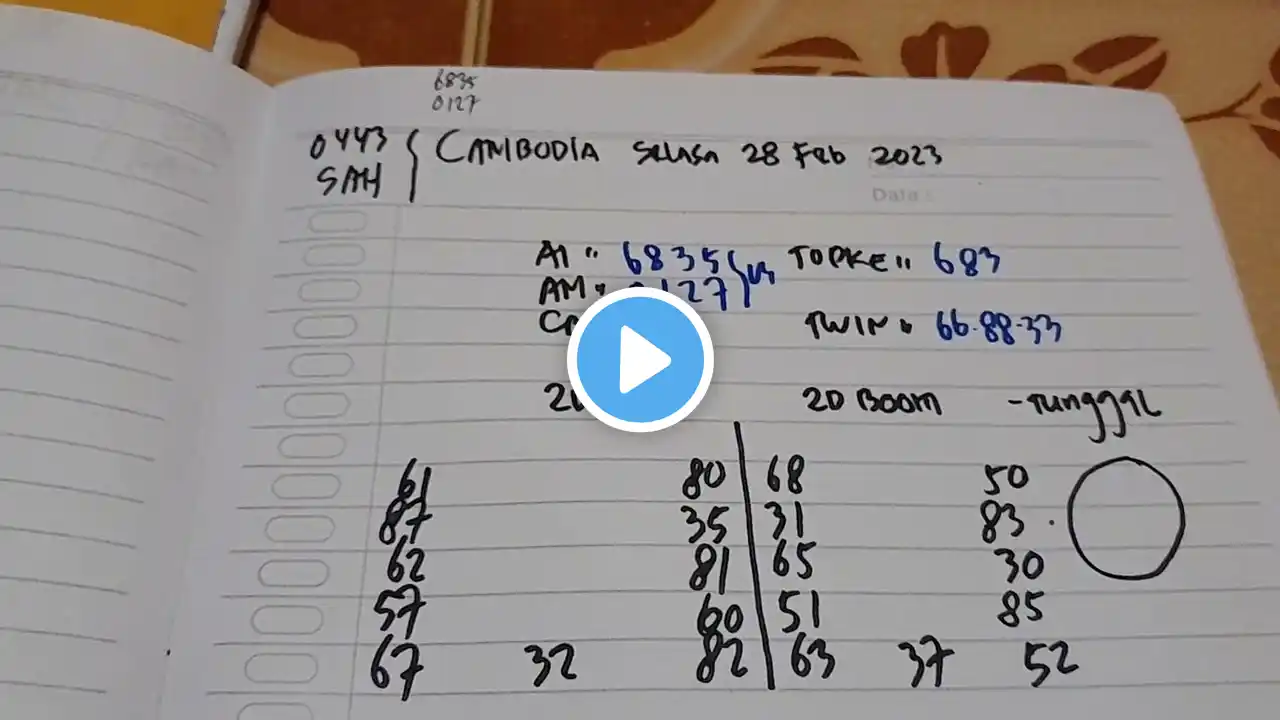 6835
0127
0443 { CAMBODIA SELASA 28 Feb 2023
SAH
Data :
AI " 6835 } TOPKE " 683
AM 127
TWIN " 66.88.33
2D BOOM - Tunggal
61 80 68 50
87 35 31 83
62 81 65 30
57 60 51 85
67 32 82 63 37 52